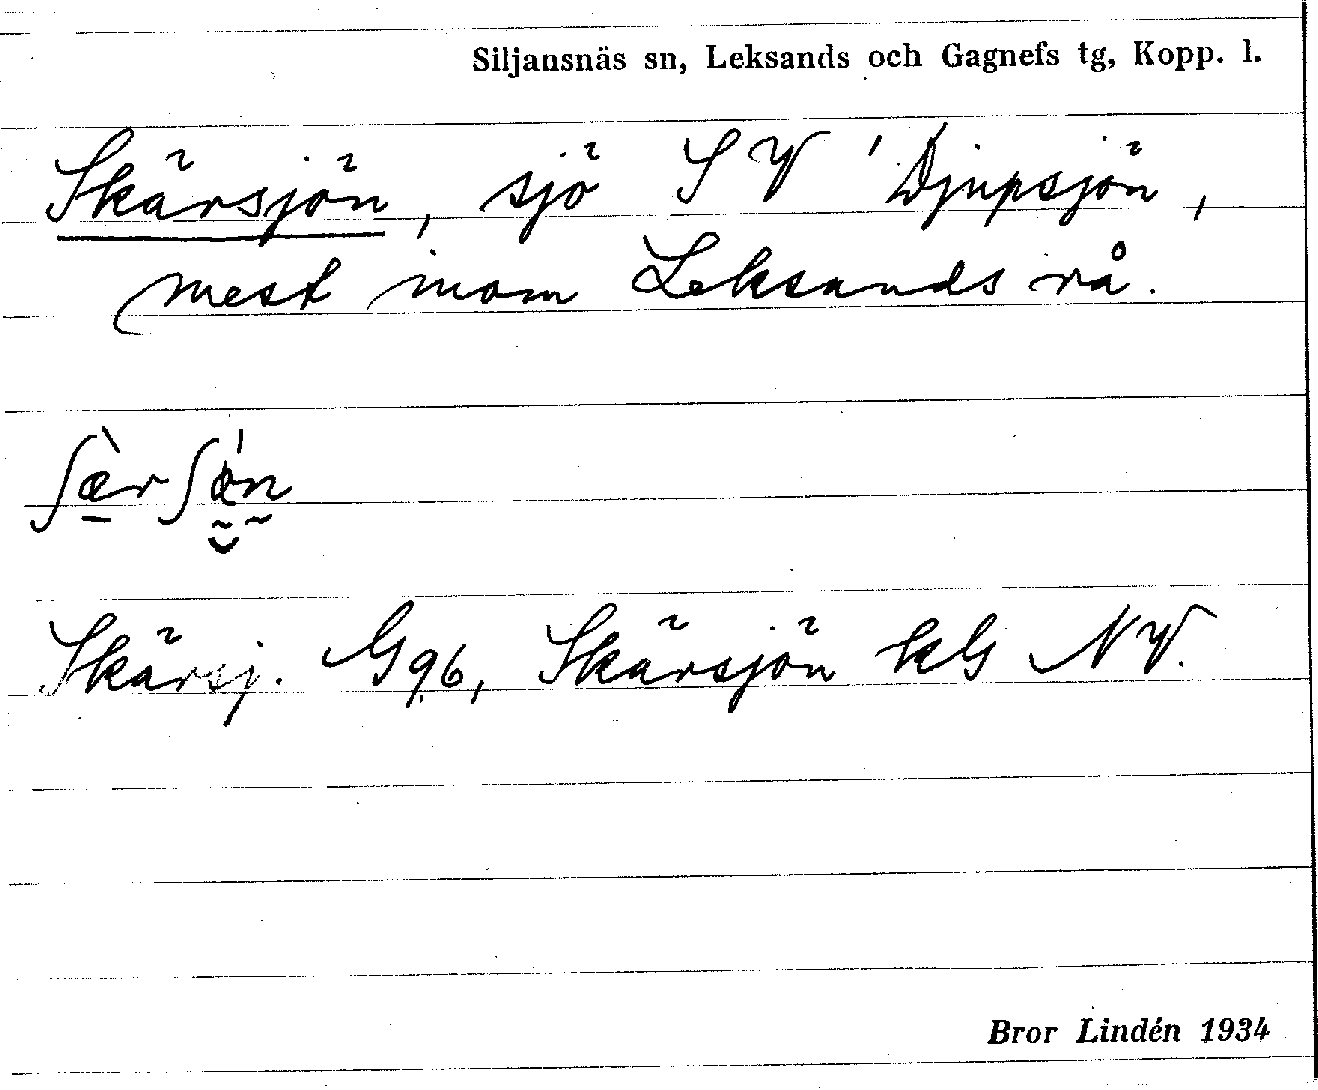 Siljansnäs sn, Leksands och Gagnefs tg, Kopp. l.
Skärsjön, sjö SV 'Djupsjön,
mest inom Leksands rå.
ʃæ̀r ʃǿn
Skärsj. G96, Skärsjön kG NV.
Bror Lindén 1934